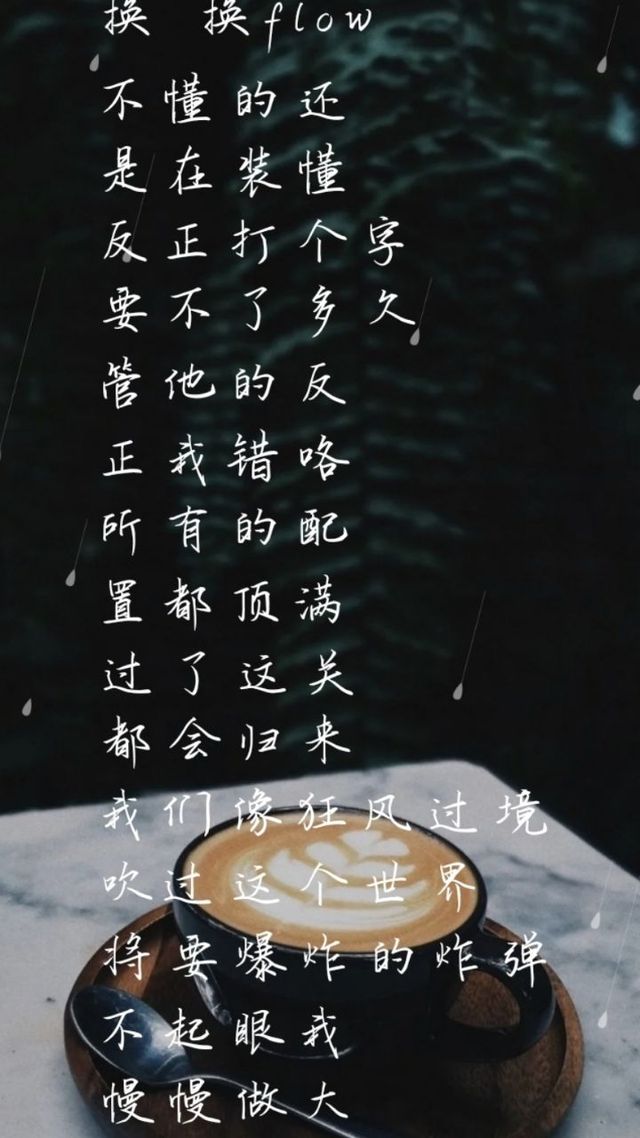 换 换flow
不懂的还
是在装懂
反正打个字
要不了多久
管他的反
正我错咯
所有的配
置都顶满
过了这关
都会归来
我们像狂风过境
吹过这个世界
将要爆炸的炸弹
不起眼我
慢慢做大